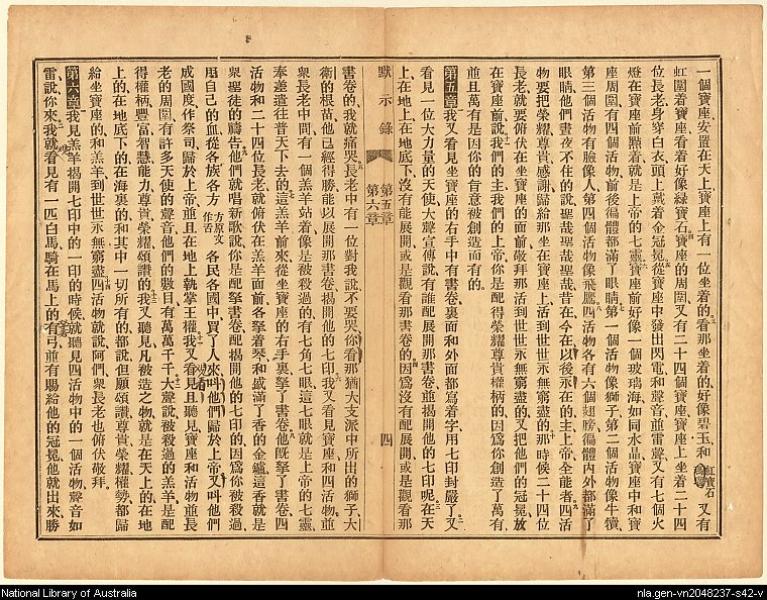 一個寶座、安置在天上、寶座上有一位坐着的、看那坐着的、好像碧玉、和紅寶石又有
虹圍着寶座、看着好像綠寶石、寶座的周圍、又有二十四個寶座、寶座上坐着二十四
位長老、身穿白衣、頭上戴着金冠冕、從寶座中發出閃電和聲音、並雷聲、又有七個火
燈在寶座前點着、就是上帝的七靈、寶座前好像一個玻璃海、如同水晶、寶座中和寶
座周圍、有四個活物、前後徧體都滿了眼睛、第一個活物像獅子、第二個活物像牛犢、
第三個活物有臉像人、第四個活物像飛鷹、四活物各有六個翅膀、徧體內外都滿了
眼睛、他們晝夜不住的說、聖哉聖哉聖哉、昔在今在以後永在的主上帝全能者、四活
物要把榮耀尊貴感謝歸給那坐在寶座上、活到世世永無窮盡的、那時候二十四位
長老就要俯伏在坐寶座的面前、敬拜那活到世世永無窮盡的、又把他們的冠冕放
在寶座前、說我們的主我們的上帝、你是配得榮耀尊貴權柄的、因爲你創造了萬有、
並且萬有是因你的旨意被創造而有的。
第五章 我又看見坐寶座的右手中有書卷、裏面和外面都寫着字、用七印封嚴了、又
看見一位大力量的天使、大聲宣傳說、有誰配展開那書卷、並揭開他的七印呢、在天
上、在地上、在地底下、沒有能展開、或是觀看那書卷的、因爲沒有配展開、或是觀看那
默示錄 第五章 第六章 四
書卷的、我就痛哭、長老中有一位對我說、不要哭、你看那猶大支派中所出的獅子、大
衞的根苗、他已經得勝、能以展開那書卷、揭開他的七印、我又看見寶座和四活物、並
衆長老中間、有一個羔羊站着、像是被殺過的、有七角七眼、這七眼就是上帝的七靈、
奉差遣往普天下去的、這羔羊前來、從坐寶座的右手裏拏了書卷、他旣拏了書卷、四
活物和二十四位長老就俯伏在羔羊面前、各拏着琴、和盛滿了香的金爐、這香就是
衆聖徒的禱告、他們就唱新歌說、你是配拏書卷、配揭開他的七印的、因爲你被殺過、
用自己的血、從各族各方方原文作舌各民各國中、買了人來、叫他們歸於上帝、又叫他們
成國度作祭司、歸於上帝、並且在地上執掌王權、我又看見且聽見、寶座和活物並長
老的周圍、有許多天使的聲音、他們的數目有萬萬千千、大聲說、被殺過的羔羊是配
得權柄豐富智慧能力尊貴榮耀頌讚的、我又聽見凡被造之物、就是在天上的、在地
上的、在地底下的、在海裏的、和其中一切所有的、都說、但願頌讚尊貴榮耀權勢、都歸
給坐寶座的和羔羊、到世世永無窮盡、四活物就說、阿們、衆長老也俯伏敬拜。
第六章 我見羔羊揭開七印中的一印的時候、就聽見四活物中的一個活物聲音如
雷、說、你來、我就看見有一匹白馬、騎在馬上的有弓、並有賜給他的冠冕、他就出來、勝
National Library of Australia
nla.gen-vn2048237-s42-v